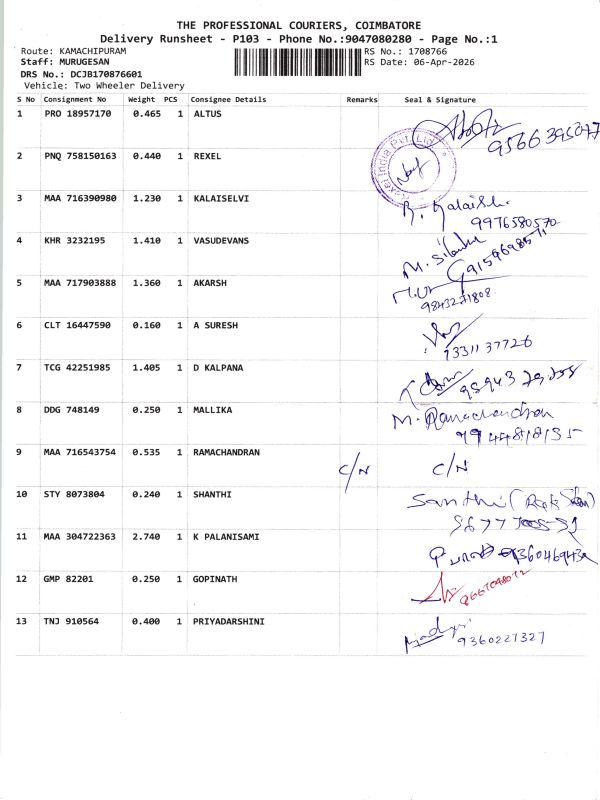 THE PROFESSIONAL COURIERS, COIMBATORE
Delivery Runsheet - P103 - Phone No.:9047080280 - Page No.:1
Route: KAMACHIPURAM RS No.: 1708766
Staff: MURUGESAN RS Date: 06-Apr-2026
DRS No.: DCJB170876601
Vehicle: Two Wheeler Delivery
S No Consignment No Weight PCS Consignee Details Remarks Seal & Signature
1 PRO 18957170 0.465 1 ALTUS
9566395077
2 PNQ 758150163 0.440 1 REXEL
India Pvt. Ltd
3 MAA 716390980 1.230 1 KALAISELVI
9976580570
4 KHR 3232195 1.410 1 VASUDEVANS
5 MAA 717903888 1.360 1 AKARSH
9843271808
6 CLT 16447590 0.160 1 A SURESH
7331137726
7 TCG 42251985 1.405 1 D KALPANA
8 DDG 748149 0.250 1 MALLIKA M. Ramachandran
9944818135
9 MAA 716543754 0.535 1 RAMACHANDRAN C/N C/N
10 STY 8073804 0.240 1 SHANTHI Santhi
11 MAA 304722363 2.740 1 K PALANISAMI
12 GMP 82201 0.250 1 GOPINATH
13 TNJ 910564 0.400 1 PRIYADARSHINI
9360227327